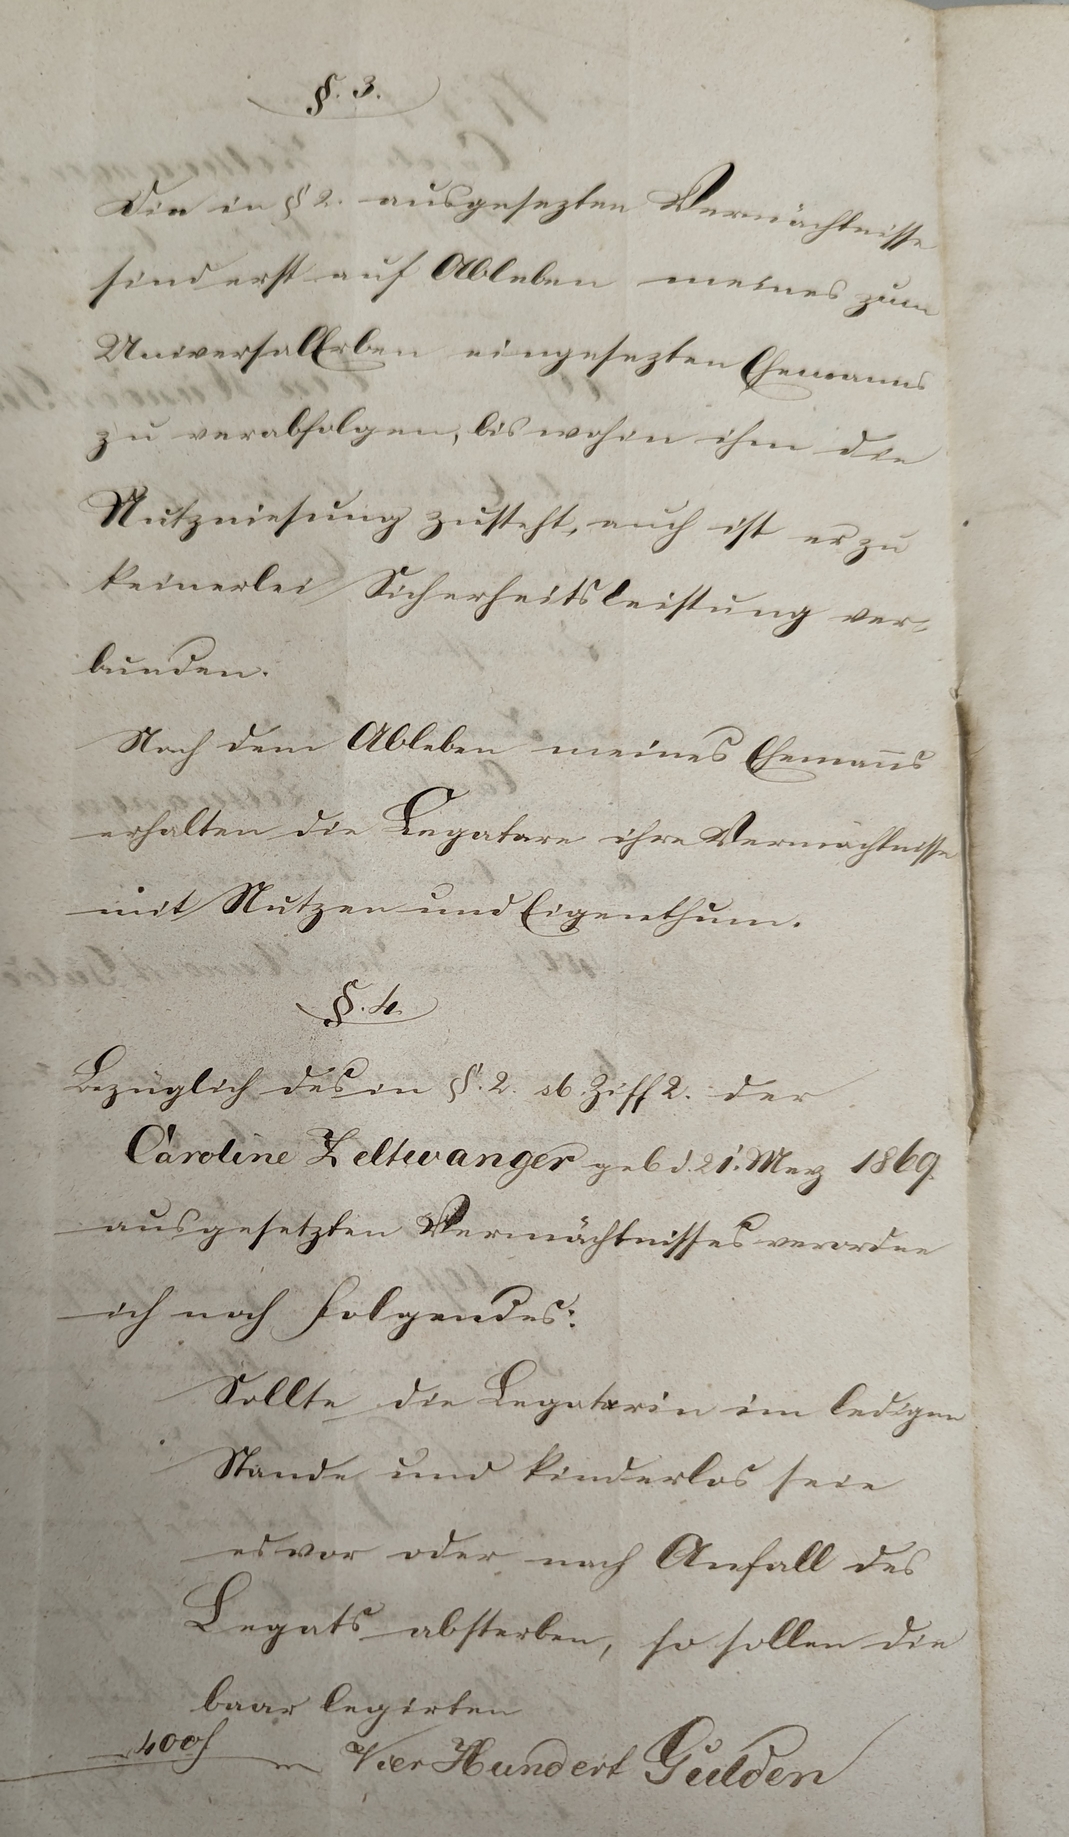 §. 3.
Die in § 2. ausgesezten Vermächtnisse
sind erst auf Ableben meines zum
UniversalErben eingesezten Ehemanns
zu verabfolgen, bis wohin ihm die
Nutzniesung zusteht, auch ist er zu
keinerlei Sicherheitsleistung ver-
bunden.
Nach dem Ableben meines Ehemanns
erhalten die Legatare ihre Vermächtnisse
mit Nutzen und Eigenthum.
§. 4.
Bezüglich des in §. 2. sb. Ziff 2. der
Caroline Zeltwanger geb d. 21. Merz 1869.
ausgesetzten Vermächtnisses verordne
ich noch folgendes:
Sollte die Legatarin im ledigen
Stande und kinderlos seie
es vor oder nach Anfall des
Legats absterben, so sollen die
baar legirten
400 f Vier Hundert Gulden